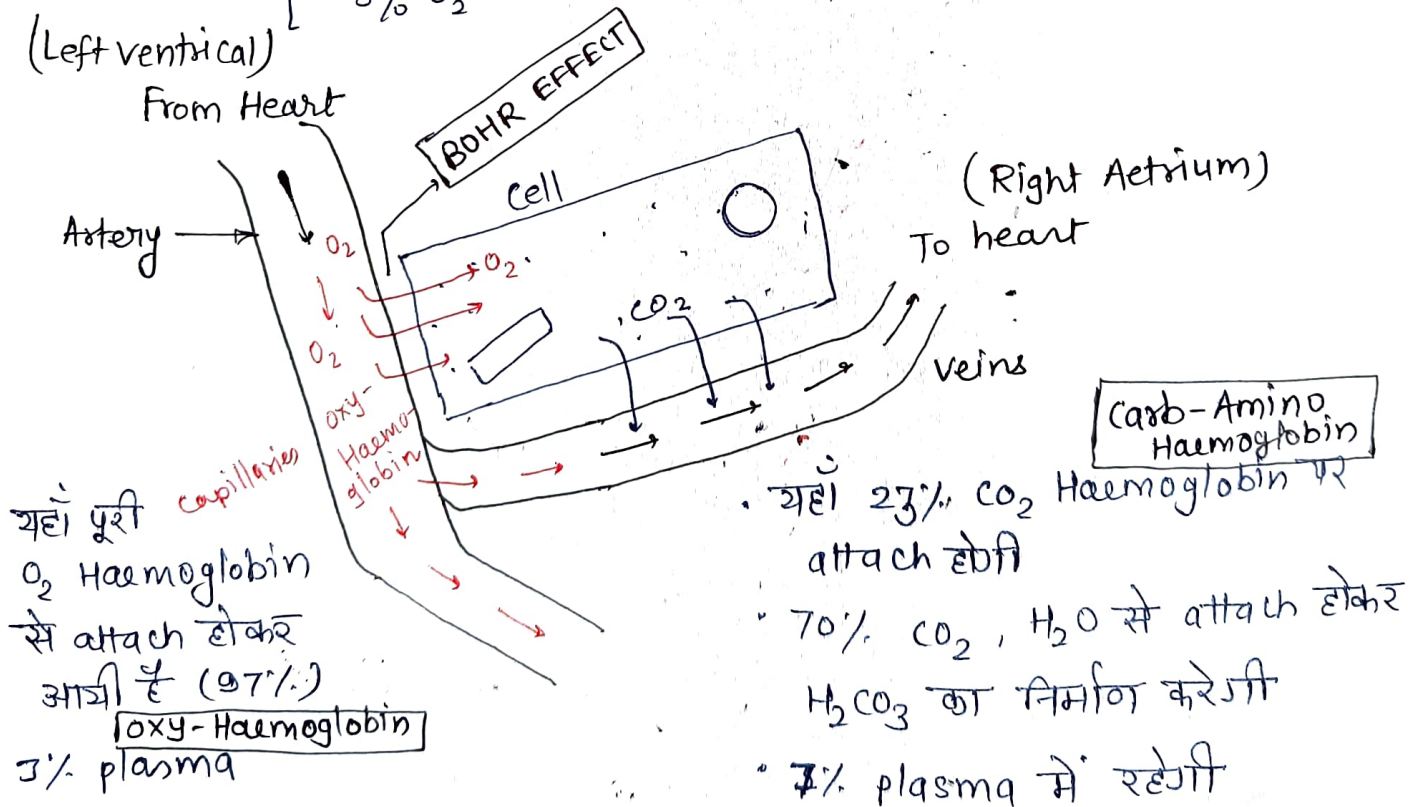 % O₂
(Left ventrical)
From Heart
BOHR EFFECT
Cell
(Right Aetrium)
To heart
Artery
O₂
O₂
CO₂
O₂
veins
oxy-
Haemo-
globin
capillaries
Carb-Amino
Haemoglobin
यहाँ पूरी
O₂ Haemoglobin
से attach होकर
आयी है (97%)
oxy-Haemoglobin
3% plasma
• यहाँ 23% CO₂ Haemoglobin पर
attach होगी
• 70% CO₂, H₂O से attach होकर
H₂CO₃ का निर्माण करेगी
• 7% plasma में रहेगी